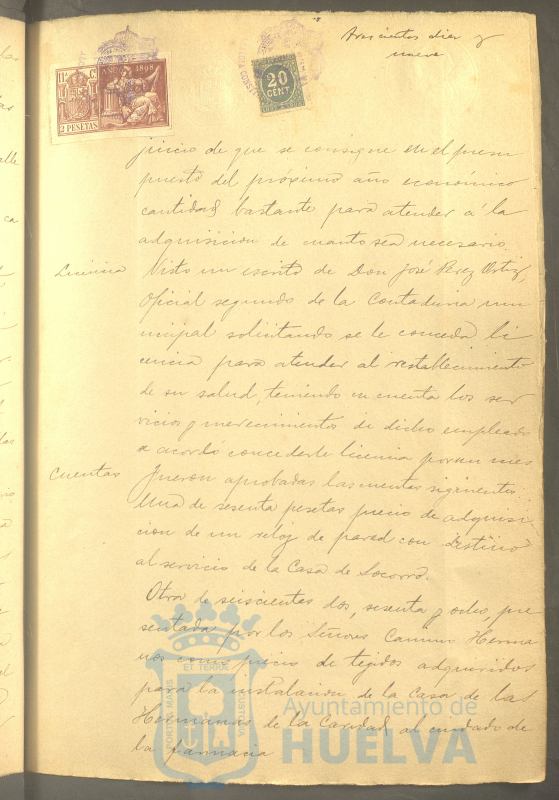 Doscientos diez y
nueve
11ª C.
AÑO 1898
2 PESETAS
20
CENT
juicio de que se consigne en el presu
puesto del próximo año económico
cantidad bastante para atender á la
adquisicion de cuanto sea necesario.
Licencia
Visto un escrito de Don José Perez Ortiz,
Oficial segundo de la Contaduria mu
nicipal solicitando se le conceda li
cencia para atender al restablecimiento
de su salud, teniendo en cuenta los ser
vicios y merecimientos de dicho empleado
se acordó concederle licencia por un mes
Cuentas
Fueron aprobadas las cuentas siguientes
Una de sesenta pesetas precio de adquisi
cion de un reloj de pared con destino
al servicio de la Casa de Socorro.
Otra de seiscientas dos, sesenta y ocho, pre
sentada por los Señores Herma
nos como precio de tejidos adquiridos
para la instalacion de la Casa de las
Hermanas de la Caridad al cuidado de
la farmacia
Ayuntamiento de
HUELVA
PORTUS MARIS
ET TERRE
CUSTODIA